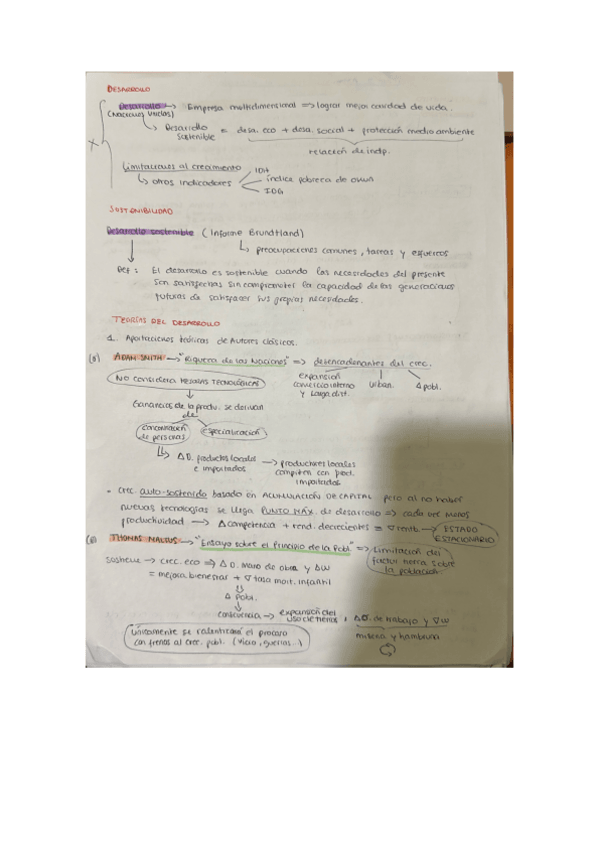 DESARROLLO
Desarrollo → Empresa multidimensional ⇒ lograr mejor calidad de vida.
(Naciones Unidas)
↳ Desarrollo sostenible = desa. eco + desa. social + protección medio ambiente
relación de indp.
Limitaciones al crecimiento
↳ otros indicadores
IDH
índice pobreza
IDG
SOSTENIBILIDAD
Desarrollo sostenible (Informe Brundtland)
↳ preocupaciones comunes, tareas y esfuerzos
Def: El desarrollo es sostenible cuando las necesidades del presente
son satisfechas sin comprometer la capacidad de las generaciones
futuras de satisfacer sus propias necesidades.
TEORÍAS DEL DESARROLLO
1. Aportaciones teóricas de Autores clásicos.
ADAM SMITH → "Riqueza de las Naciones" ⇒ desencadenantes del crec.
NO considera MEJORAS TECNOLÓGICAS
expansión
comercio interno
y larga dist.
Urban.
Δ pobl.
Ganancias de la produ. se derivan
de
concentración
de personas
especialización
↳ Δ D. productos locales
e importados
→ productores locales
compiten con prod.
importados
- Crec. auto-sostenido basado en ACUMULACIÓN DE CAPITAL pero al no haber
nuevas tecnologías se llega PUNTO MÁX. de desarrollo ⇒ cada vez menos
productividad → Δ competencia + rend. decrecientes = ∇ rentb. → ESTADO
ESTACIONARIO
THOMAS MALTHUS → "Ensayo sobre el Principio de la Pobl." ⇒ Limitación del
factor tierra sobre
la población
sostiene → crec. eco ⇒ Δ D. mano de obra y ΔW
= mejora bienestar + ∇ tasa mort. infantil
⇓
Δ pobl.
↓
consecuencia → expansión del
uso de tierras , ΔO. de trabajo y ∇W
miseria y hambruna
únicamente se ralentizará el proceso
con frenos al crec. pobl. (vicio, guerras...)